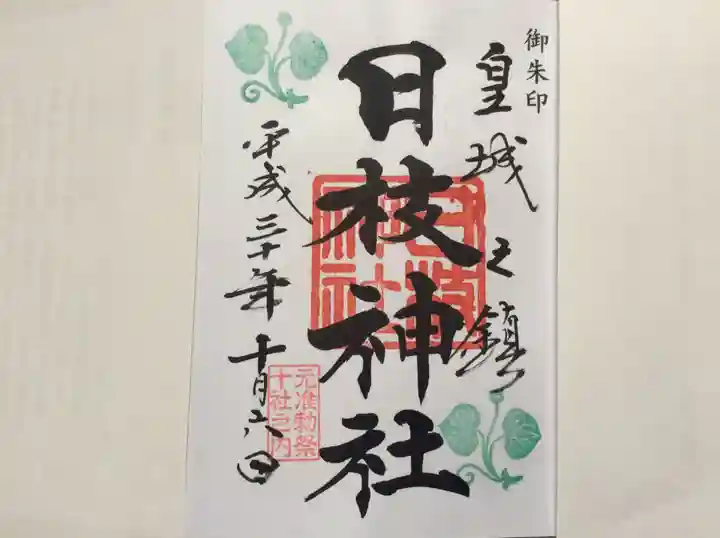 御朱印
皇城之鎮
日枝神社
日枝
神社
平成三十年十月六日
元准勅祭
十社之内